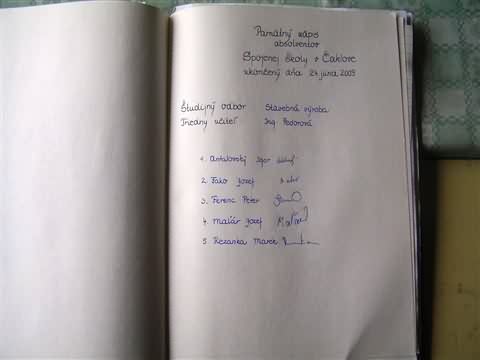 Pamätný zápis
absolventov
Spojenej školy v Čaklove
ukončený dňa 24. júna 2009
Študijný odbor Stavebná výroba
Triedny učiteľ Ing. Fedorová
1. Antalovský Igor
2. Fako Jozef
3. Ferenc Peter
4. Maľár Jozef
5. Rezanka Marek